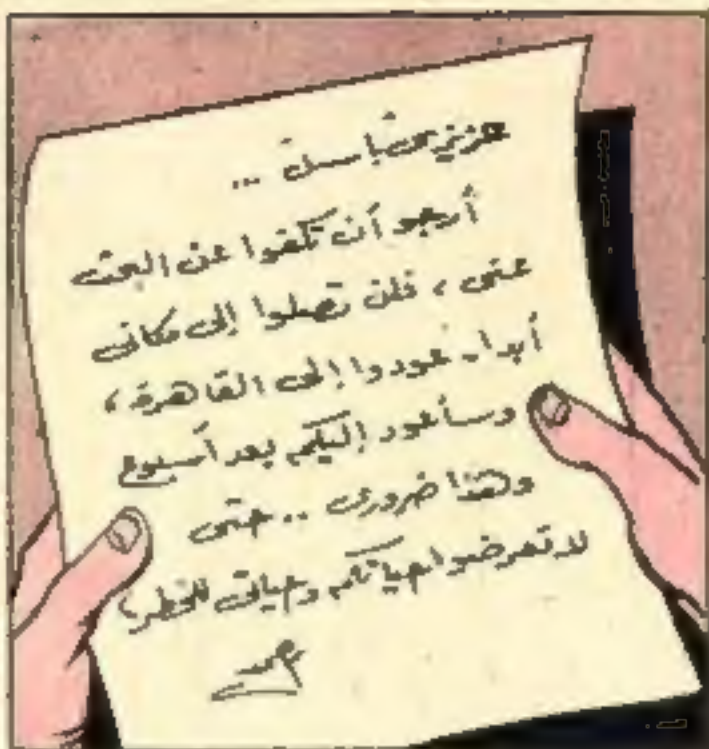 عزيزى باسل ...
أرجو أن تكفوا عن البحث
عنى ، فلن تصلوا إلى مكانى
أبدا . عودوا إلى القاهرة ،
وسأعود إليكم بعد أسبوع
وهذا ضرورى .. حتى
لا تعرضوا حياتكم وحياتى للخطر